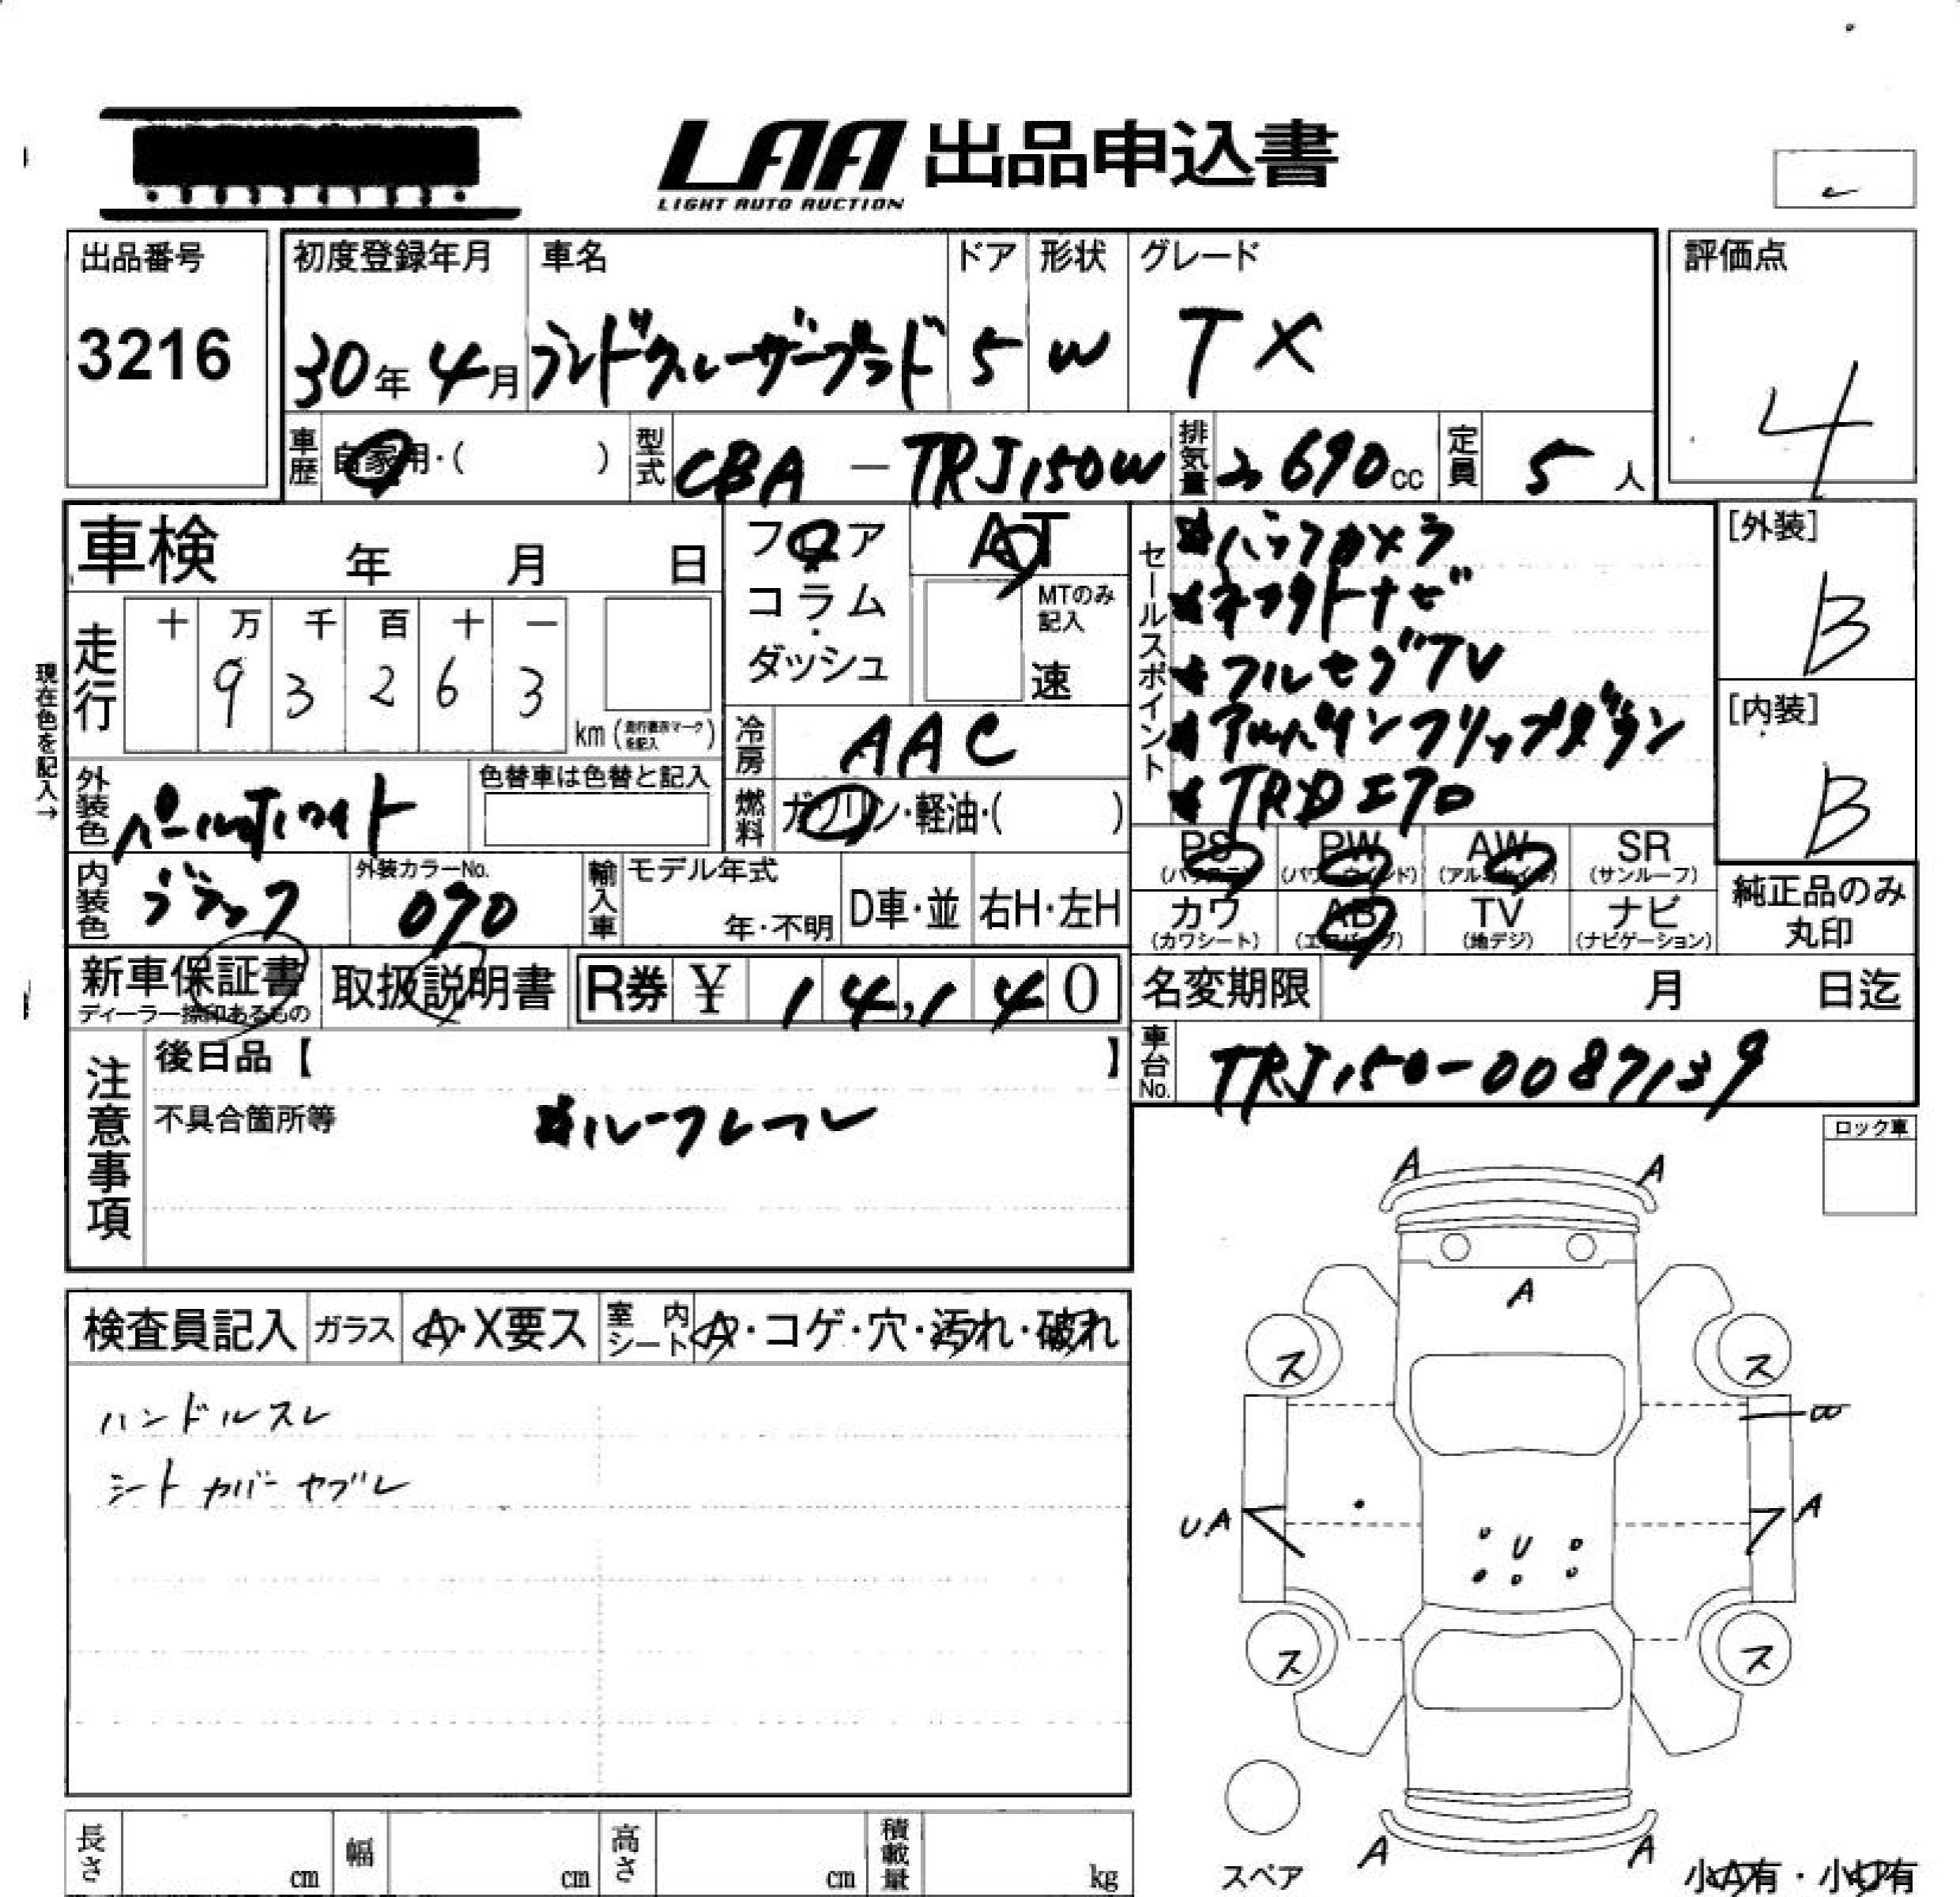 LAA 出品申込書
LIGHT AUTO AUCTION
出品番号
3216
初度登録年月
30年 4月
車名
ランドクルーザープラド
ドア
5
形状
W
グレード
TX
評価点
4
車歴
自家用・( )
型式
CBA-TRJ150W
排気量
2690cc
定員
5人
車検 年 月 日
フロア
コラム
・
ダッシュ
AT
MTのみ
記入
速
セールスポイント
*バックカメラ
*ネクストナビ
*フルセグTV
*アルパインフリップダウン
*TRDエアロ
[外装]
B
[内装]
B
現在色を記入→
走行
十 万 千 百 十 一
9 3 2 6 3
km
冷房
AAC
外装色
パールホワイト
色替車は色替と記入
燃料
ガソリン・軽油・( )
PS
(パワステ)
PW
(パワーウインド)
AW
(アルミホイル)
SR
(サンルーフ)
カワ
(カワシート)
AB
(エアバッグ)
TV
(地デジ)
ナビ
(ナビゲーション)
純正品のみ
丸印
内装色
ブラック
外装カラーNo.
070
輸入車
モデル年式
年・不明
D車・並
右H・左H
新車保証書
ディーラー捺印あるもの
取扱説明書
R券 ¥ 14,140
名変期限 月 日迄
車台No.
TRJ150-0087139
注意事項
後日品【 】
不具合箇所等
*ルーフレール
ロック車
検査員記入
ガラス
A・X要ス
室内シート
A・コゲ・穴・汚れ・破れ
ハンドルスレ
シートカバーヤブレ
A A
A
ス ス
B
UA
A
U
ス ス
A A
スペア
小A有・小U有
長さ cm
幅 cm
高さ cm
積載量 kg